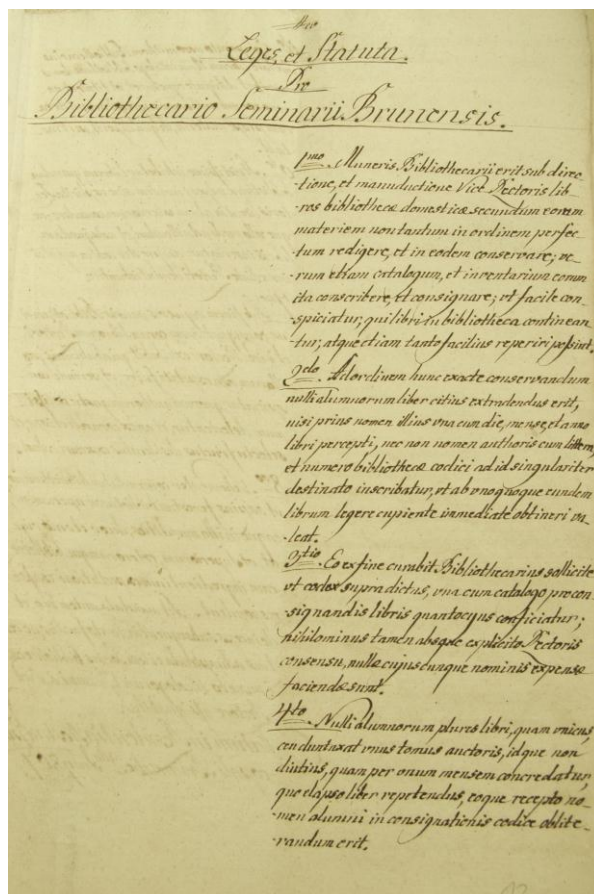 Leges, et Statuta.
Pro
Bibliothecario Seminarii Brunensis.
1mo. Muneris Bibliothecarii erit sub direc-
-tione, et manuductione Vice Rectoris lib-
-ros bibliothecæ domesticæ secundum eorum
materiem non tantum in ordinem perfec-
tum redigere, et in eodem conservare; ve-
-rum etiam catalogum, et inventarium eorum
ita conscribere, et consignare; vt facile con-
-spiciatur, qui libri in bibliotheca continean-
-tur, atque etiam tanto facilius reperiri possint.
2do. Ad ordinem hunc exacte conservandum
nulli alumnorum liber citius extradendus erit,
nisi prius nomen illius vna cum die, mense, et anno
libri percepti, nec non nomen authoris cum littera,
et numero bibliothecæ codici ad id singulariter
destinato inscribatur, vt ab vnoquoque eundem
librum legere cupiente immediate obtineri va-
-leat.
3tio. Eo ex fine curabit Bibliothecarius sollicite
vt codex supra dictus, vna cum catalogo pro con
signandis libris quantocyus conficiatur;
nihilominus tamen absque explicito Rectoris
consensu, nullæ cujuscunque nominis expensæ
faciendæ sunt.
4to. Nulli alumnorum plures libri, quam vnicus,
ceu duntaxat vnus tomus auctoris, idque non
diutius, quam per vnum mensem concredatur,
quo elapso liber repetendus, eoque recepto no-
-men alumni in consignationis codice oblite-
-randum erit.